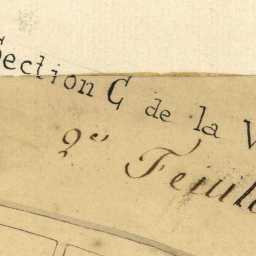 Section C de la V
2e Feuille